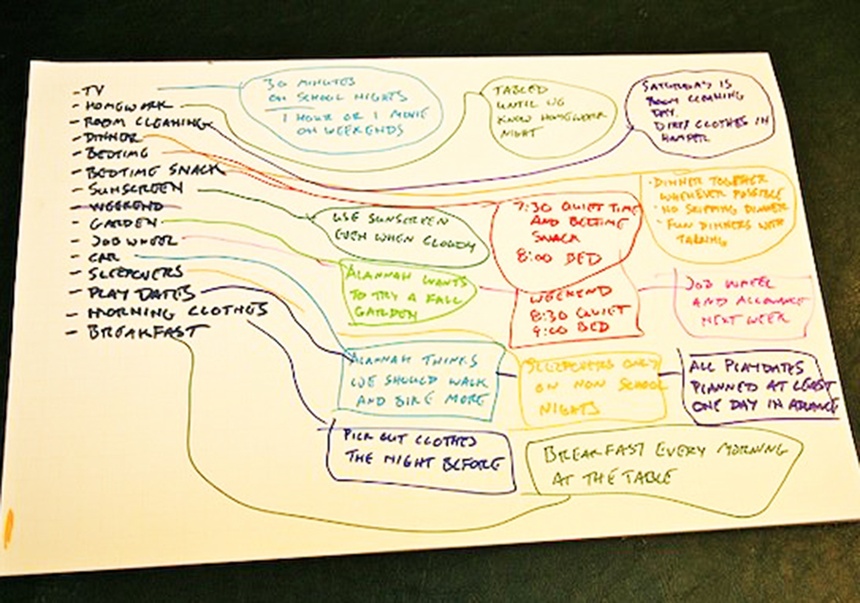 - TV
- HOMEWORK
- ROOM CLEANING
- DINNER
- BEDTIME
- BEDTIME SNACK
- SUNSCREEN
- WEEKEND
- GARDEN
- JOB WHEEL
- CAR
- SLEEPOVERS
- PLAY DATES
- MORNING CLOTHES
- BREAKFAST
30 MINUTES
ON SCHOOL NIGHTS
1 HOUR OR 1 MOVIE
ON WEEKENDS
TABLED
UNTIL WE
KNOW HOMEWORK
NIGHT
SATURDAYS IS
ROOM CLEANING
DAY.
DIRTY CLOTHES IN
HAMPER
USE SUNSCREEN
EVEN WHEN CLOUDY
7:30 QUIET TIME
AND BEDTIME
SNACK
8:00 BED
· DINNER TOGETHER
WHENEVER POSSIBLE
· NO SKIPPING DINNER
· FUN DINNERS WITH
TALKING
ALANNAH WANTS
TO TRY A FALL
GARDEN
WEEKEND
8:30 QUIET
9:00 BED
JOB WHEEL
AND ALLOWANCE
NEXT WEEK
ALANNAH THINKS
WE SHOULD WALK
AND BIKE MORE
SLEEPOVERS ONLY
ON NON SCHOOL
NIGHTS
ALL PLAYDATES
PLANNED AT LEAST
ONE DAY IN ADVANCE
PICK OUT CLOTHES
THE NIGHT BEFORE
BREAKFAST EVERY MORNING
AT THE TABLE